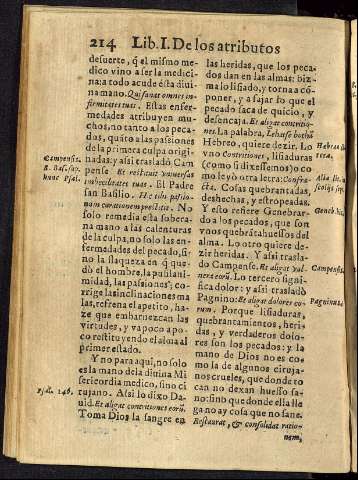 214 Lib. I. De los atributos
desuerte, q̃ el mismo me-
dico vino a ser la medici-
na: a todo acude ésta divi
na mano. Qui sanat omnes in-
firmitates tuas. Estas enfer-
medades atribuyen mu-
chos, no tanto a los peca-
dos, quãto a las passiones
de la primera culpa origi-
nadas; y asi trasladò Cam
pense. Et restituit universas
imbecilitates tuas. El Padre
san Basilio.
Campensis.
S. Basi.
hunc Psal.
nam curationem præstite. No
solo remedia esta sobera-
na mano a las calenturas
de la culpa, no solo las en-
fermedades del pecado, si
no la flaqueza en q̃ que-
dò el hombre, la pusilani-
midad, las passiones; co-
rrige las inclinaciones ma
las, refrena el apetito, ha-
ze que embarnezcan las
virtudes, y va poco a po-
co restituyendo el alma al
primer estado.
Y no para aqui, no solo
es la mano de la divina Mi
sericordia medico, sino ci
rujano. Asi lo dixo Da-
uid. Et aligat contritiones eorũ.
Toma Dios la sangre en
Psal. 146.
las heridas, que los peca-
dos dan en las almas: biz-
ma lo lisiado, y torna a cõ-
poner, y a sajar lo que el
pecado saca de quicio, y
desencaja. Et aligat contritio-
nes. La palabra,
Hebreo, quiere dezir. Lo
vno Contritiones, lisiaduras
(como si dixessemos) o co
mo leyò otra letra: Confra-
cta. Cosas quebrantadas,
deshechas, y estropeadas.
Y esto refiere Genebrar-
do a los pecados, que son
vnos quebrãtahuessos del
alma. Lo otro quiere de-
zir heridas. Y asi trasla-
dò Campense. Et aligat vul-
nera eorũ. Lo tercero signi-
fica dolor: y asi trasladò
Pagnino: Et aligat dolores eo-
rum. Porque lisiaduras,
quebrantamientos, heri-
das, y verdaderos dolo-
res son los pecados: y la
mano de Dios no es co-
mo la de algunos ciruja-
nos crueles, que donde to
can no dexan huesso sa-
no: sino que donde ella lle
ga no ay cosa que no sane.
Restaurat, & consolidat ratio-
nem,
Campensis.
Pagninus.